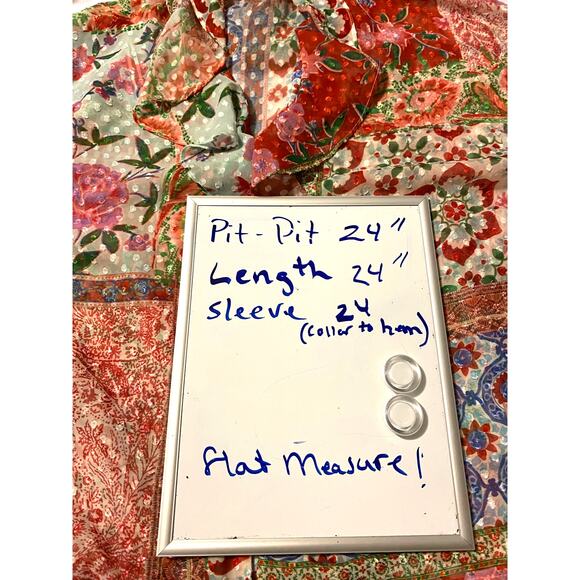 Pit-Pit 24"
Length 24"
Sleeve 24
(collar to hem)
flat Measure!